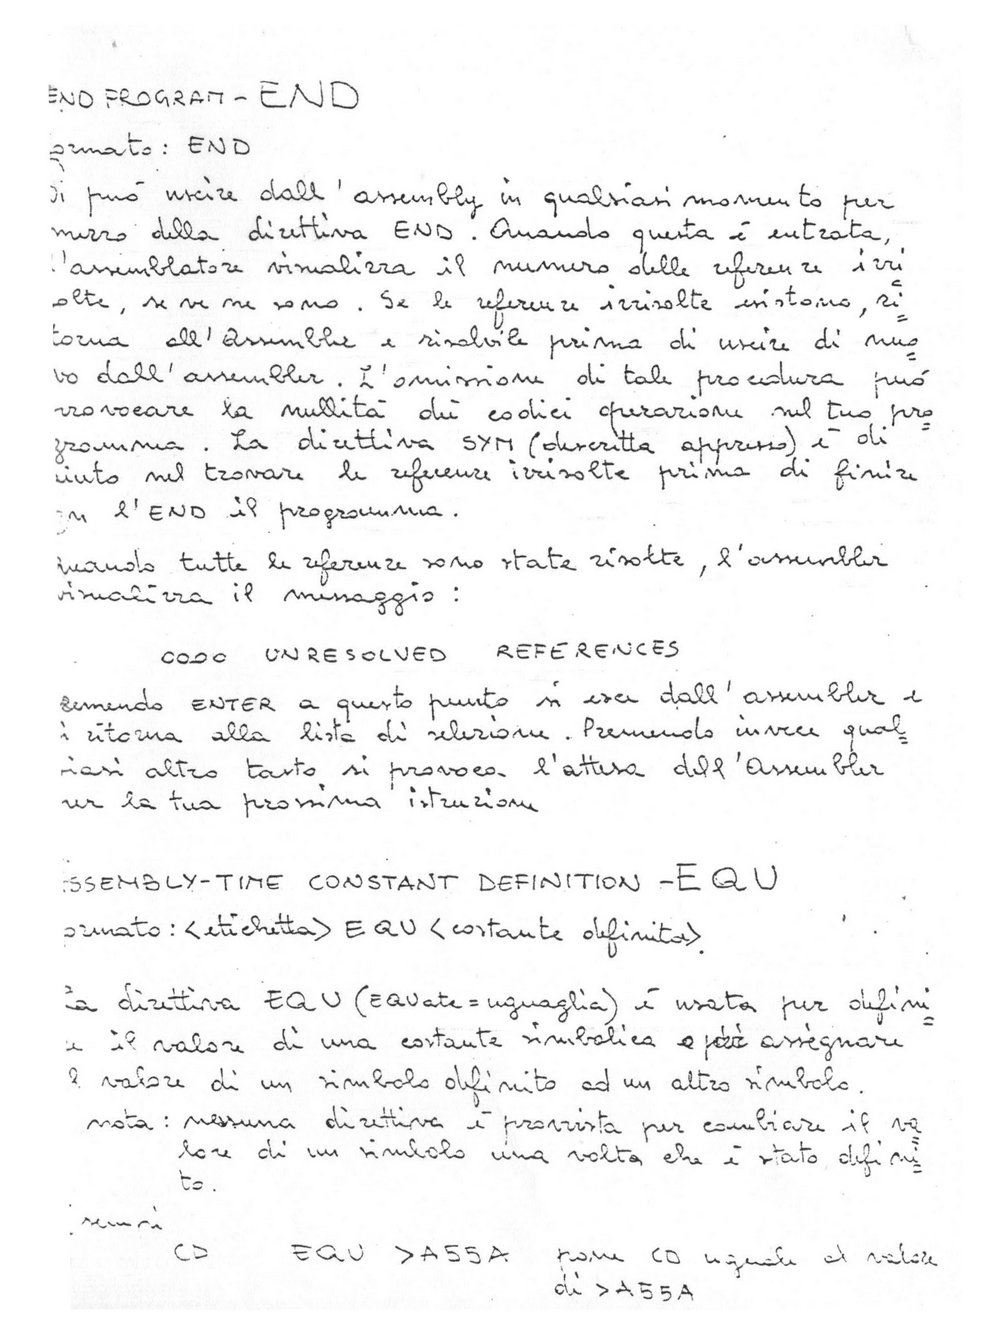 END PROGRAM - END
ormato: END
Si può uscire dall'assembly in qualsiasi momento per
mezzo della direttiva END. Quando questa è entrata,
l'assemblatore visualizza il numero delle referenze irri
solte, se ve ne sono. Se le referenze irrisolte esistono, ri=
torna all'Assembler e risolvile prima di uscire di nuo=
vo dall'assembler. L'omissione di tale procedura può
provocare la nullità dei codici operazione nel tuo pro=
gramma. La direttiva SYM (descritta appresso) è di
aiuto nel trovare le referenze irrisolte prima di finire
con l'END il programma.
Quando tutte le referenze sono state risolte, l'assembler
visualizza il messaggio:
0000 UNRESOLVED REFERENCES
remendo ENTER a questo punto si esce dall'assembler e
i ritorna alla lista di selezione. Premendo invece qual=
siasi altro tasto si provoca l'attesa dell'Assembler
per la tua prossima istruzione
ASSEMBLY-TIME CONSTANT DEFINITION - EQU
ormato: <etichetta> EQU <costante definita>
La direttiva EQU (EQUate = uguaglia) è usata per defini=
re il valore di una costante simbolica o assegnare
il valore di un simbolo definito ad un altro simbolo.
nota: nessuna direttiva è provvista per cambiare il va=
lore di un simbolo una volta che è stato defini=
to.
CD EQU >A55A pone CD uguale al valore
di >A55A